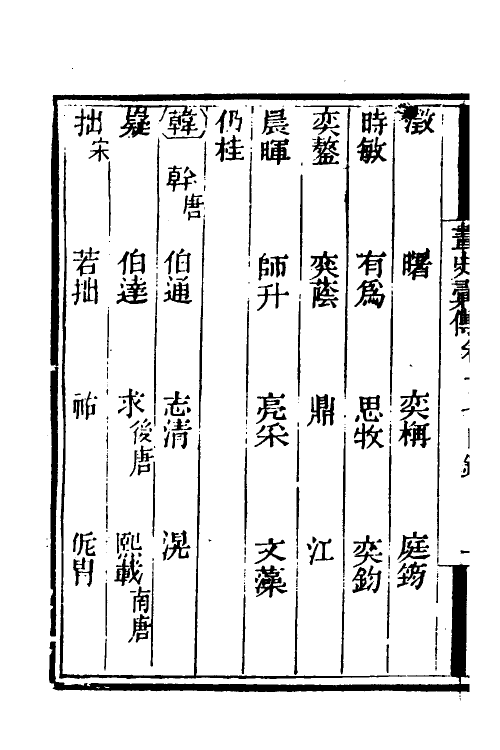 澂 曙 奕稱 庭筠
時敏 有爲 思牧 奕鈞
奕鏊 奕蔭 鼎 江
晨暉 師升 亮采 文藻
仍桂
韓 幹唐 伯通 志清 滉
嶷 伯達 求後唐 熙載南唐
拙宋 若拙 祐 侂冑